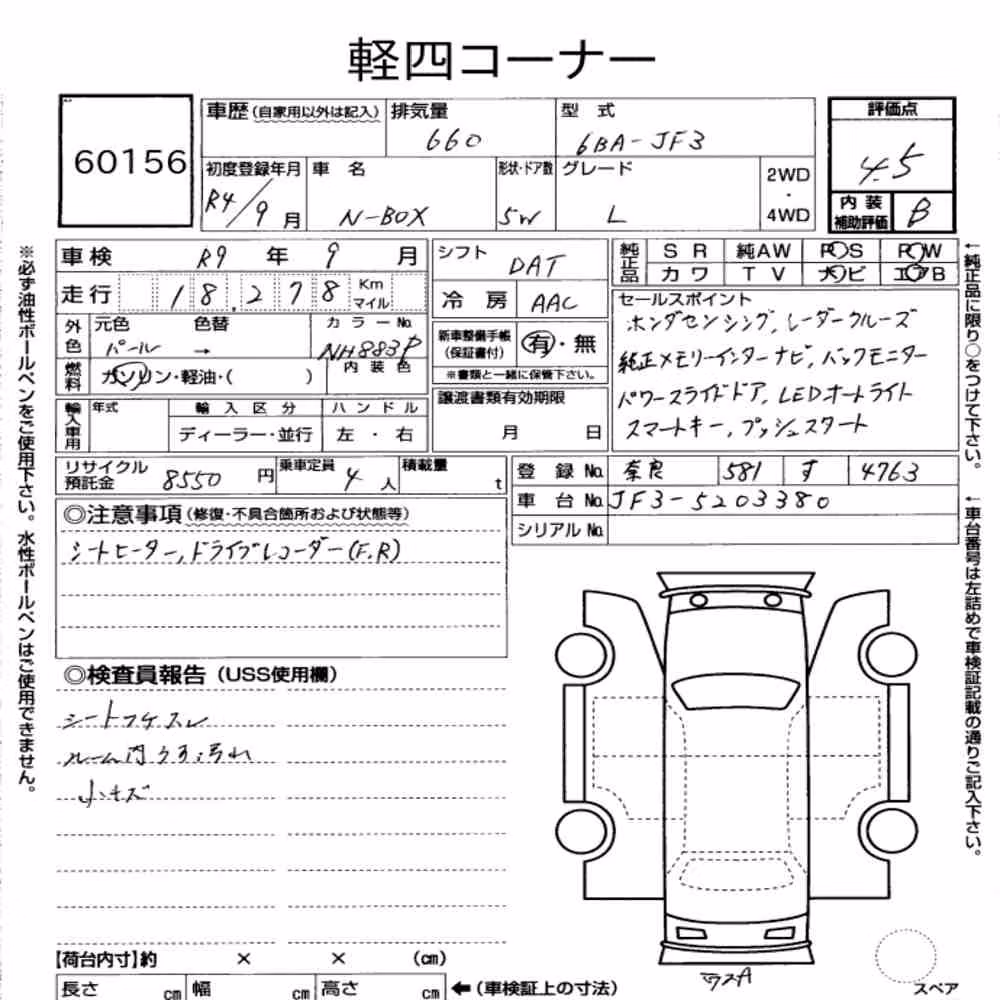 軽四コーナー
60156
車歴(自家用以外は記入) 排気量 660 型式 6BA-JF3
評価点 4.5
初度登録年月 R4/9月 車名 N-BOX 形状・ドア数 5W グレード L 2WD・4WD
内装補助評価 B
車検 R9年 9月 シフト DAT
純正品 SR 純AW PS PW
カワ TV ナビ エアB
走行 18,278 Km マイル 冷房 AAC
セールスポイント
ホンダセンシング, レーダークルーズ
純正メモリーインターナビ, バックモニター
パワースライドドア, LEDオートライト
スマートキー, プッシュスタート
外色 元色 パール → 色替 カラーNo. NH883P
内装色
新車整備手帳(保証書付) 有・無
※書類と一緒に保管下さい。
燃料 ガソリン・軽油・( )
譲渡書類有効期限
月 日
輸入車用 年式 輸入区分 ハンドル
ディーラー・並行 左・右
リサイクル預託金 8550円 乗車定員 4人 積載量 t
登録No. 奈良 581 す 4763
車台No. JF3-5203380
シリアルNo.
◎注意事項(修復・不具合箇所および状態等)
シートヒーター, ドライブレコーダー(F.R)
◎検査員報告(USS使用欄)
シートコゲスレ
ルーム内キズ汚れ
小キズ
【荷台内寸】約 × × (cm)
長さ cm 幅 cm 高さ cm ←(車検証上の寸法)
ワスA
スペア
※必ず油性ボールペンをご使用下さい。水性ボールペンはご使用できません。
←純正品に限り○をつけて下さい。
←車台番号は左詰めで車検証記載の通りご記入下さい。